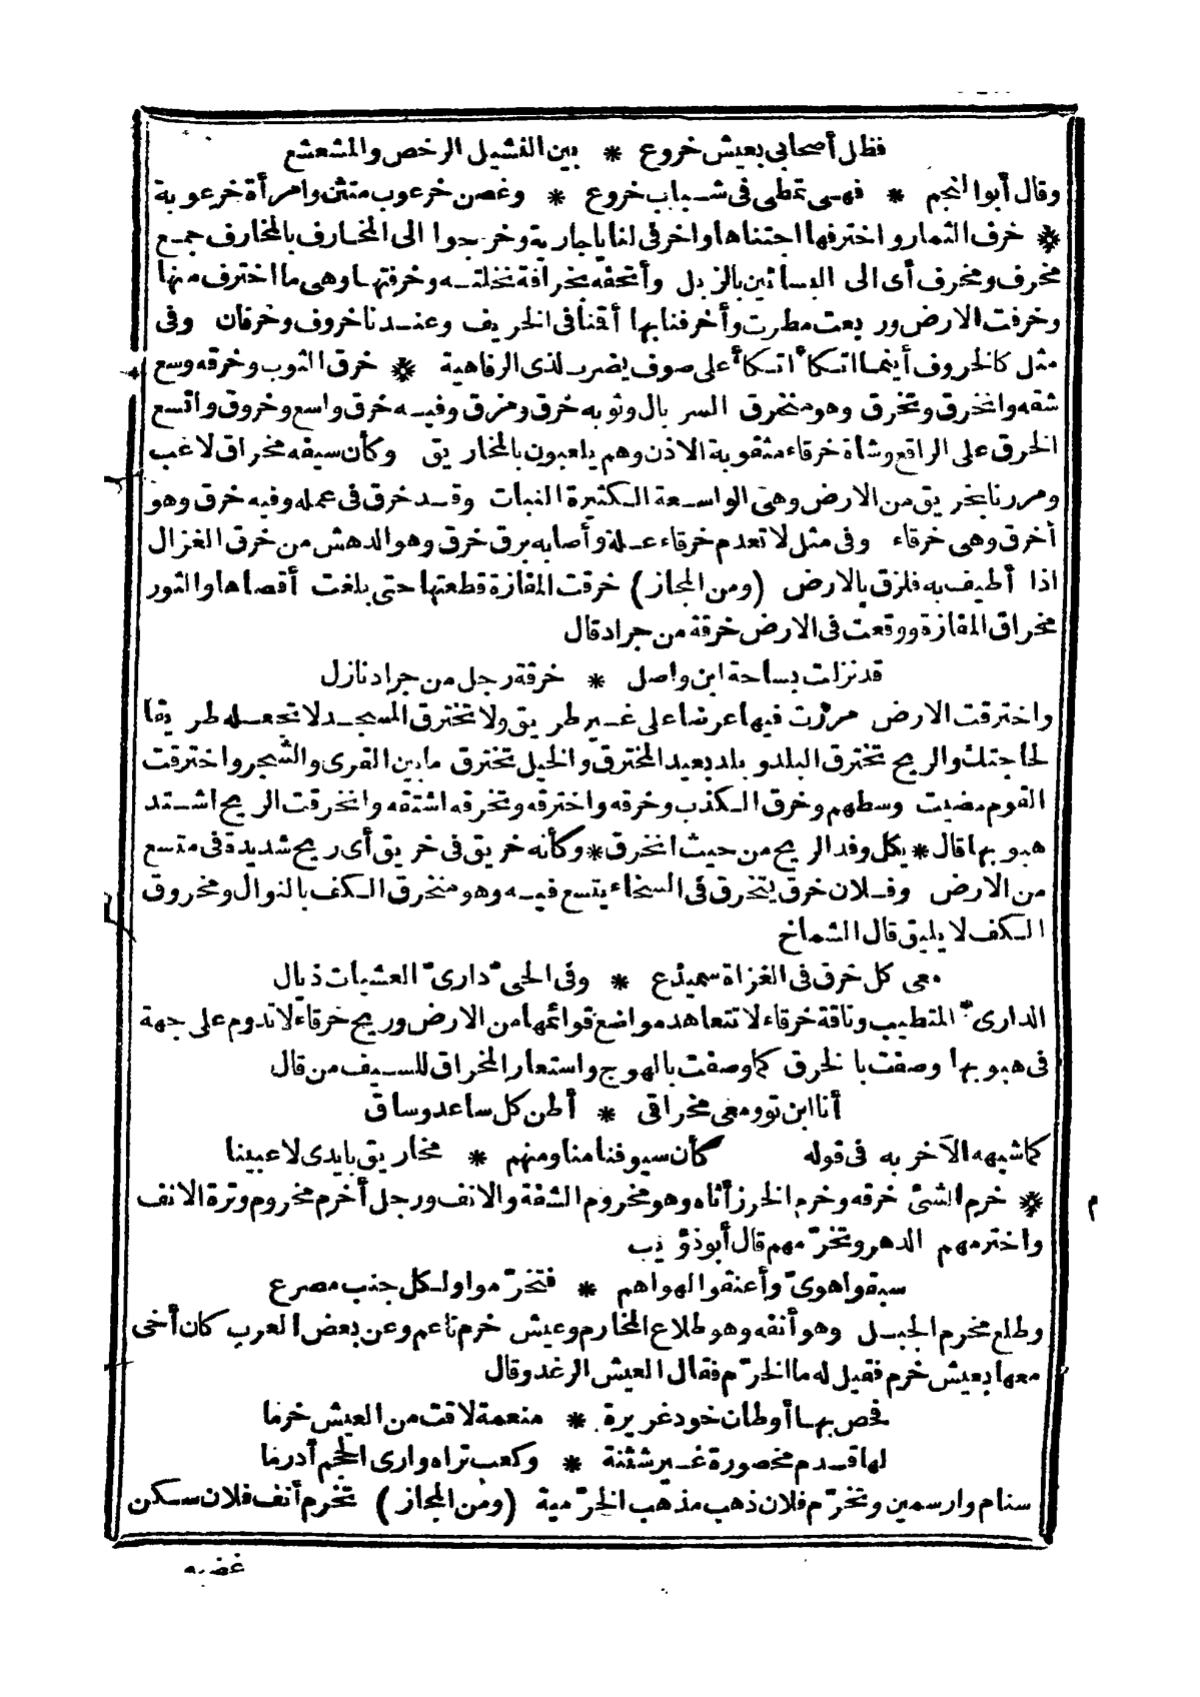 فظل أصحابى بعيش خروع * بين النشيل الرخص والمشعشع
وقال أبو النجم * فهى تمطى فى شباب خروع * وغصن خرعوب متثن وامرأة خرعوبة
* خرف الثمار واخترفها اجتناها واخرفى لنا ياجارية وخرجوا الى المخارف بالمخارف جمع
مخرف ومخرف أى الى البساتين بالزبل وأتحفه بخرافة نخلته وخرفتها وهى ما اخترف منها
وخرفت الارض وربعت مطرت وأخرفنا بها أقنا فى الخريف وعندنا خروف وخرفان وفى
مثل كالخروف أينما اتكأ اتكأ على صوف يضرب لذى الرفاهية * خرق الثوب وخرقه وسع
شقه وانخرق وتخرق وهو منخرق السربال وثوبه خرق ومزق وفيه خرق واسع وخروق واتسع
الخرق على الراقع وشاة خرقاء مثقوبة الاذن وهم يلعبون بالمخاريق وكأن سيفه مخراق لاعب
ومررنا بخريق من الارض وهى الواسعة الكثيرة النبات وقد خرق فى عمله وفيه خرق وهو
أخرق وهى خرقاء وفى مثل لا تعدم خرقاء علة وأصابه برق خرق وهو الدهش من خرق الغزال
اذا أطيف به فلزق بالارض (ومن المجاز) خرقت المفازة قطعتها حتى بلغت أقصاها والثور
مخراق المفازة ووقعت فى الارض خرقة من جراد قال
قد نزلت بساحة ابن واصل * خرقة رجل من جراد نازل
واخترقت الارض مررت فيها عرضا على غير طريق ولا تخترق المسجد لا تجعله طريقا
لحاجتك والريح تخترق البلد وبلد بعيد المخترق والخيل تخترق ما بين القرى والشجر واخترقت
القوم مضيت وسطهم وخرق الكذب وخرقه واخترقه وتخرقه اشتقه وانخرقت الريح اشتد
هبوبها قال * يكل وفد الريح من حيث انخرق * وكأنه خريق فى خريق أى ريح شديدة فى متسع
من الارض وفلان خرق يتخرق فى السخاء يتسع فيه وهو منخرق الكف بالنوال ومخروق
الكف لا يليق قال الشماخ
معى كل خرق فى الغزاة سميذع * وفى الحى دارى العشيات ذيال
الدارى المتطيب وناقة خرقاء لا تتعاهد مواضع قوائمها من الارض وريح خرقاء لا تدوم على جهة
فى هبوبها وصفت بالخرق كما وصفت بالهوج واستعار المخراق للسيف من قال
أنا ابن تو ومعى مخراقى * أطن كل ساعد وساق
كما شبهه الآخر به فى قوله كأن سيوفنا منا ومنهم * مخاريق بايدى لاعبينا
* خرم الشئ خرقه وخرم الخرز أثاه وهو مخروم الشفة والانف ورجل أخرم مخروم وترة الانف
م
واخترمهم الدهر وتخرّمهم قال أبو ذؤيب
سبقوا هوىّ وأعنقوا لهواهم * فتخرّموا ولكل جنب مصرع
وطلع مخرم الجبل وهو أنفه وهو طلاع المخارم وعيش خرم ناعم وعن بعض العرب كان أخى
معها بعيش خرم فقيل له ما الخرّم فقال العيش الرغد وقال
فحص بها أوطان خود غريرة * منعمة لاقت من العيش خرما
لها قدم مخصورة غير شثنة * وكعب تراه وارى الحجم أدرما
سنام وارسمين وتخرّم فلان ذهب مذهب الخرّمية (ومن المجاز) تخرم أنف فلان سكن
غضبه